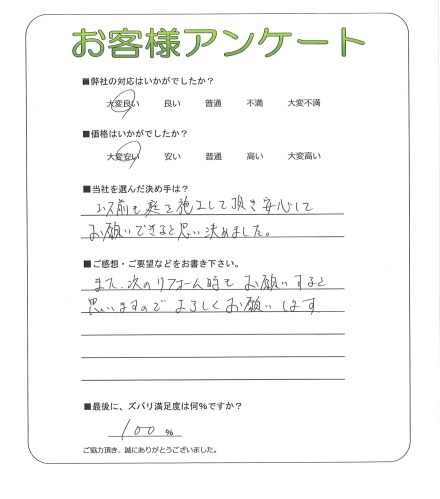 お客様アンケート
■弊社の対応はいかがでしたか？
大変良い　良い　普通　不満　大変不満
■価格はいかがでしたか？
大変安い　安い　普通　高い　大変高い
■当社を選んだ決め手は？
以前も庭を施工して頂き安心して
お願いできると思い決めました。
■ご感想・ご要望などをお書き下さい。
また、次のリフォーム時もお願いすると
思いますのでよろしくお願いします
■最後に、ズバリ満足度は何％ですか？
100 %
ご協力頂き、誠にありがとうございました。